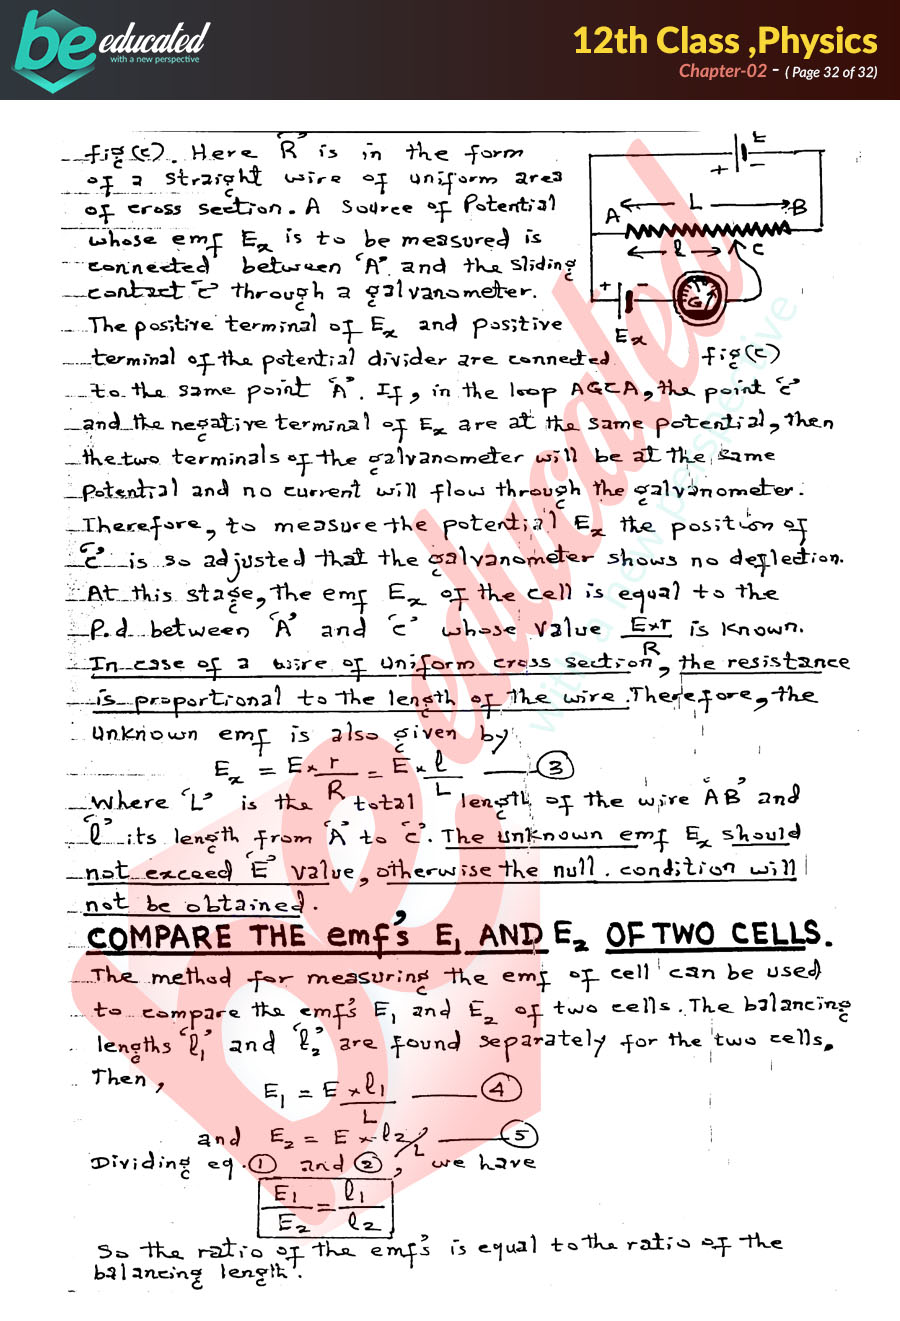 be educated
with a new perspective
12th Class ,Physics
Chapter-02 - ( Page 32 of 32)
fig(c). Here 'R' is in the form
of a straight wire of uniform area
of cross section. A Source of Potential
whose emf Ex is to be measured is
connected between 'A' and the sliding
contact 'c' through a galvanometer.
The positive terminal of Ex and positive
terminal of the potential divider are connected
E
+ -
A L B
l C
+ - G
Ex
fig(c)
to the same point 'A'. If, in the loop AGCA, the point 'c'
and the negative terminal of Ex are at the same potential, then
the two terminals of the galvanometer will be at the same
Potential and no current will flow through the galvanometer.
Therefore, to measure the potential Ex the position of
'c' is so adjusted that the galvanometer shows no deflection.
At this stage, the emf Ex of the cell is equal to the
P.d between 'A' and 'c' whose value E×r/R is known.
In case of a wire of uniform cross section, the resistance
is proportional to the length of the wire. Therefore, the
unknown emf is also given by
Ex = E × r/R = E × l/L —— (3)
Where 'L' is the total length of the wire AB' and
'l' its length from 'A' to 'c'. The unknown emf Ex should
not exceed 'E' value, otherwise the null condition will
not be obtained.
COMPARE THE emf's E1 AND E2 OF TWO CELLS.
The method for measuring the emf of cell can be used
to compare the emf's E1 and E2 of two cells. The balancing
lengths 'l1' and 'l2' are found separately for the two cells.
Then,
E1 = E × l1/L —— (4)
and E2 = E × l2/L —— (5)
Dividing eq. (1) and (2), we have
E1/E2 = l1/l2
So the ratio of the emf's is equal to the ratio of the
balancing length.
be educated
with a new perspective